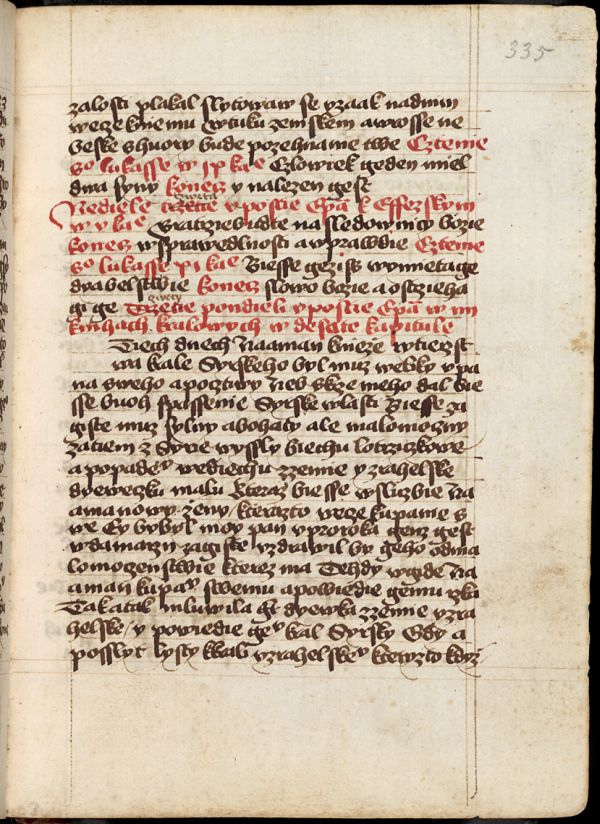 335
zalosti plakal slytowaw se yzaak nadnim
wecze knemu wtuku zemskem a wrosse ne
beske shuory bude pozehnanie twe Cztenie
so lukasse w xv kae Czlowiek geden miel
dwa syny konecz y nalezen gest
swata
Nediele trzetie v postie Epa k Effezskym
w v kae Bratrzie budte nasledownicy bozie
konecz w sprawedlnosti a w prawdie Cztenie
so lukasse xi kae Biesse gezis wymietage
diabelstwie konecz slowo bozie a ostrzieha
gi ge Trzetie pondieli v postie Epa w iiii
knihach kralowych w desate kapitule
Tiech dnech Naaman knieze rytierzst
wa krale Syrskeho byl muz weliky v pa
na sweho a pocztiwy Neb skrze nieho dal bie
sse buoh spassenie Syrske wlasti Biesse za
giste muz sylny a bohaty ale malomoczny
zatiem z Syrie wyssly biechu lotrziczkowe
a popadew wediechu z zemie yzrahelske
dyeweczku malu kteraz biesse w sluzbie Na
amanowy zeny kterazto wecze k panie s
we Ey by byl moy pan v proroka genz gest
w Samarzi zagiste vzdrawil by geho od ma
lomoczenstwie kterez ma Tehdy wgide Na
aman ku panu swemu a powiedie gemu rzka
Tak a tak mluwila gt dyewka z zemie yzra
helske y powiedie gemu kral Syrsky Gdy a
posslyt lysty krali yzrahelskemu kteryzto kdyz